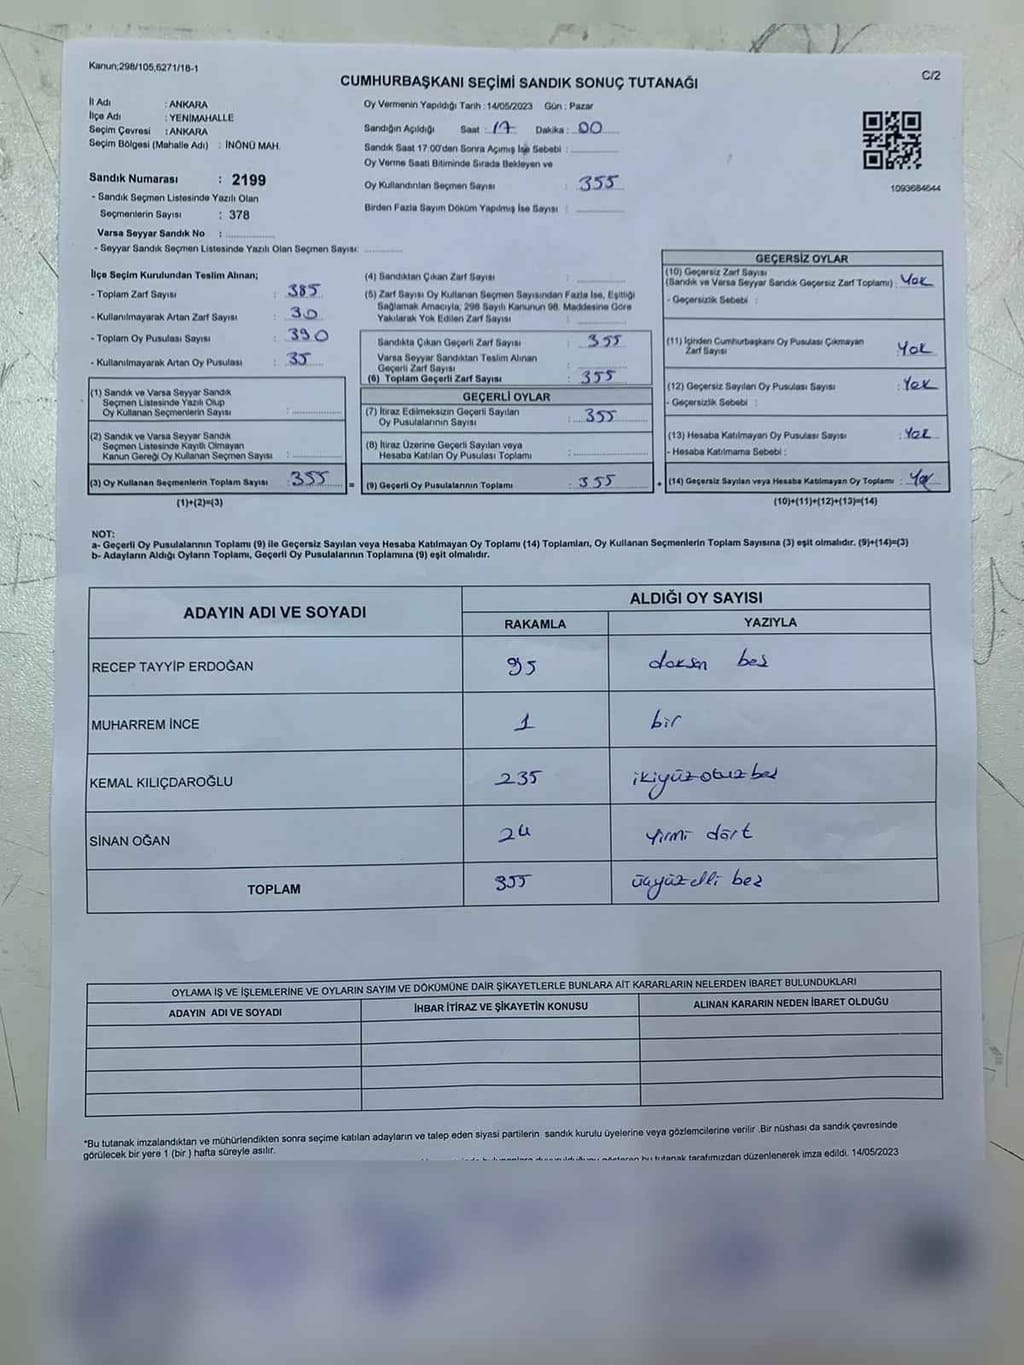 Kanun;298/105,6271/18-1
C/2
CUMHURBAŞKANI SEÇİMİ SANDIK SONUÇ TUTANAĞI
İl Adı : ANKARA
İlçe Adı : YENİMAHALLE
Seçim Çevresi : ANKARA
Seçim Bölgesi (Mahalle Adı) : İNÖNÜ MAH.
Sandık Numarası : 2199
- Sandık Seçmen Listesinde Yazılı Olan
Seçmenlerin Sayısı : 378
Varsa Seyyar Sandık No :
- Seyyar Sandık Seçmen Listesinde Yazılı Olan Seçmen Sayısı:
Oy Vermenin Yapıldığı Tarih :14/05/2023 Gün : Pazar
Sandığın Açıldığı Saat : 17 Dakika : 00
Sandık Saat 17:00'den Sonra Açımış İse Sebebi :
Oy Verme Saati Bitiminde Sırada Bekleyen ve
Oy Kullandırılan Seçmen Sayısı : 355
Birden Fazla Sayım Döküm Yapılmış İse Sayısı :
1093684644
İlçe Seçim Kurulundan Teslim Alınan;
- Toplam Zarf Sayısı : 385
- Kullanılmayarak Artan Zarf Sayısı : 30
- Toplam Oy Pusulası Sayısı : 390
- Kullanılmayarak Artan Oy Pusulası : 35
(1) Sandık ve Varsa Seyyar Sandık
Seçmen Listesinde Yazılı Olup
Oy Kullanan Seçmenlerin Sayısı :
(2) Sandık ve Varsa Seyyar Sandık
Seçmen Listesinde Kayıtlı Olmayan
Kanun Gereği Oy Kullanan Seçmen Sayısı :
(3) Oy Kullanan Seçmenlerin Toplam Sayısı : 355
(1)+(2)=(3)
(4) Sandıktan Çıkan Zarf Sayısı :
(5) Zarf Sayısı Oy Kullanan Seçmen Sayısından Fazla İse, Eşitliği
Sağlamak Amacıyla; 298 Sayılı Kanunun 98. Maddesine Göre
Yakılarak Yok Edilen Zarf Sayısı :
Sandıkta Çıkan Geçerli Zarf Sayısı : 355
Varsa Seyyar Sandıktan Teslim Alınan
Geçerli Zarf Sayısı :
(6) Toplam Geçerli Zarf Sayısı : 355
GEÇERLİ OYLAR
(7) İtiraz Edilmeksizin Geçerli Sayılan
Oy Pusulalarının Sayısı : 355
(8) İtiraz Üzerine Geçerli Sayılan veya
Hesaba Katılan Oy Pusulası Toplamı :
= (9) Geçerli Oy Pusulalarının Toplamı : 355
GEÇERSİZ OYLAR
(10) Geçersiz Zarf Sayısı
(Sandık ve Varsa Seyyar Sandık Geçersiz Zarf Toplamı) : Yok
- Geçersizlik Sebebi :
(11) İçinden Cumhurbaşkanı Oy Pusulası Çıkmayan
Zarf Sayısı : Yok
(12) Geçersiz Sayılan Oy Pusulası Sayısı : Yok
- Geçersizlik Sebebi :
(13) Hesaba Katılmayan Oy Pusulası Sayısı : Yok
- Hesaba Katılmama Sebebi :
+ (14) Geçersiz Sayılan veya Hesaba Katılmayan Oy Toplamı : Yok
(10)+(11)+(12)+(13)=(14)
NOT:
a- Geçerli Oy Pusulalarının Toplamı (9) ile Geçersiz Sayılan veya Hesaba Katılmayan Oy Toplamı (14) Toplamları, Oy Kullanan Seçmenlerin Toplam Sayısına (3) eşit olmalıdır. (9)+(14)=(3)
b- Adayların Aldığı Oyların Toplamı, Geçerli Oy Pusulalarının Toplamına (9) eşit olmalıdır.
ADAYIN ADI VE SOYADI
ALDIĞI OY SAYISI
RAKAMLA YAZIYLA
RECEP TAYYİP ERDOĞAN 95 doksan beş
MUHARREM İNCE 1 bir
KEMAL KILIÇDAROĞLU 235 ikiyüzotuzbeş
SİNAN OĞAN 24 yirmi dört
TOPLAM 355 üçyüzelli beş
OYLAMA İŞ VE İŞLEMLERİNE VE OYLARIN SAYIM VE DÖKÜMÜNE DAİR ŞİKAYETLERLE BUNLARA AİT KARARLARIN NELERDEN İBARET BULUNDUKLARI
ADAYIN ADI VE SOYADI İHBAR İTİRAZ VE ŞİKAYETİN KONUSU ALINAN KARARIN NEDEN İBARET OLDUĞU
*Bu tutanak imzalandıktan ve mühürlendikten sonra seçime katılan adayların ve talep eden siyasi partilerin sandık kurulu üyelerine veya gözlemcilerine verilir .Bir nüshası da sandık çevresinde
görülecek bir yere 1 (bir ) hafta süreyle asılır.
bu tutanak tarafımızdan düzenlenerek imza edildi. 14/05/2023